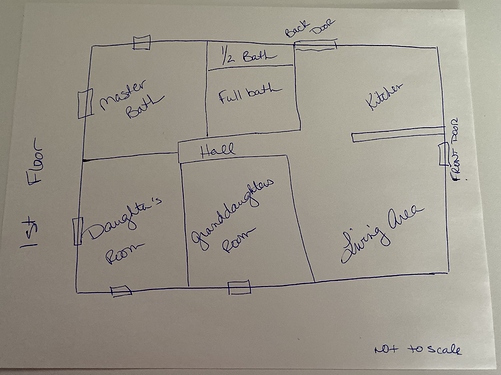 Back
Door
1/2 Bath
Master
Bath
Full bath
Kitchen
Hall
FRONT DOOR
1st Floor
Daughter's
Room
Granddaughters
Room
Living Area
NOT to scale